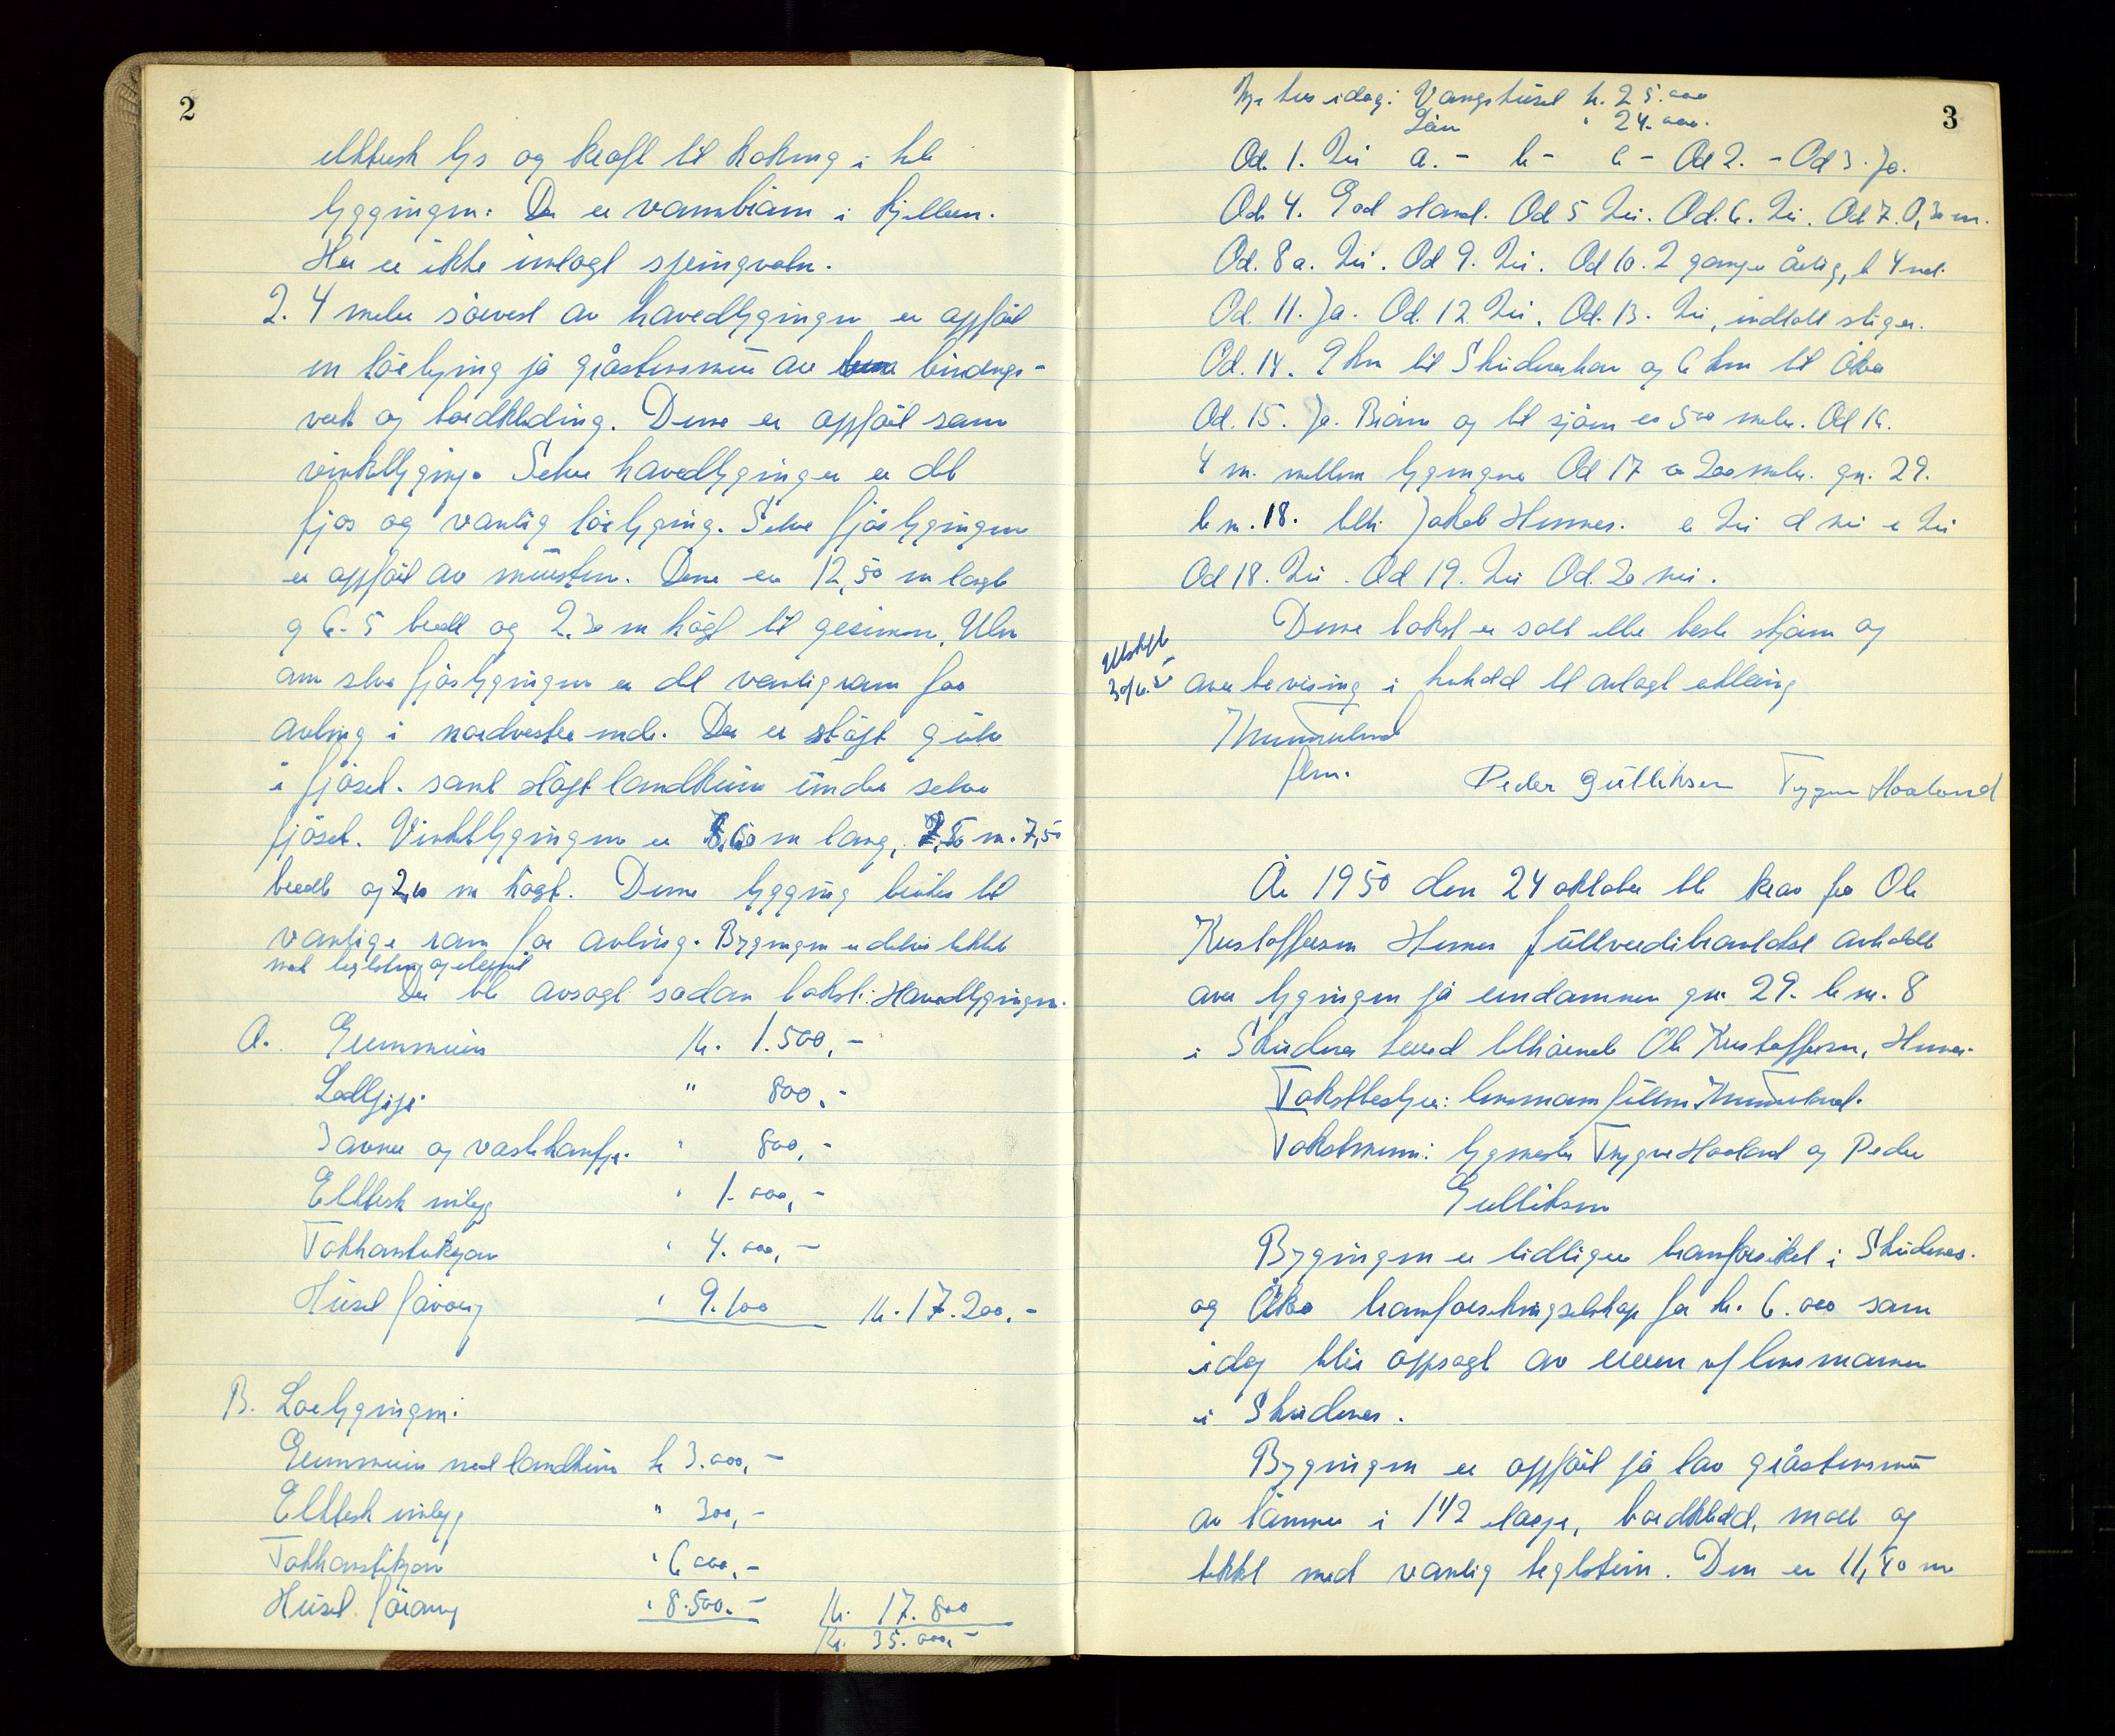 2
elektrisk lys og kraft til koking i hele
bygningen. Der er vannbrönn i kjelleren.
Her er ikke innlagt springvatn.
2. 4 meter sörvest av hovedbygningen er oppfört
en löebygning på gråstensmur av bindings-
verk og bordkledning. Denne er oppfört som
vinkelbygning. Selve hovedbygningen er det
fjös og vanlig löebygning. Selve fjösbygningen
er oppfört av mursten. Denne er 12,50 m langt
og 6.5 bredt og 2.30 m högt til gesimsen. Uten
om selve fjösbygningen er det vanlig rom for
avling i nordvestre ende. Der er stöpt gulv
i fjöset. samt stöpt landkum under selve
fjöset. Vinkelbygningen er 8,60 m lang, m. 7,50
bredt og 2,60 m högt. Denne bygning brukes til
vanlige rom for avling. Bygningen er delvis tekket
med teglsten og eternit
Der ble avsagt sådan takst: Hovedbygningen.
A. Grunnmuren Kr. 1.500,-
Lodd pipe " 800,-
Isavnee og vaskekonfge. " 800,-
Elektrisk innlegg " 1.000,-
Takkonstruksjon " 4.000,-
Huset forövrig " 9.100 Kr. 17.200,-
B. Löebygningen:
Grunnmuren med landkum kr 3.000,-
Elektrisk innlegg " 300,-
Takkonstruksjon " 6.000,-
Huset forövrig " 8.500.- Kr. 17.800
Kr. 35.000,-
3
Nye hus idag: Våningshuset kr. 25.000
Löen " 24.000.
Od. 1. Nei a. - b - c - Od 2. - Od 3. Ja.
Od. 4. God stand. Od 5 Nei. Od. 6. Nei. Od 7. 0,30 m.
Od. 8 a. Nei. Od 9. Nei. Od 10. 2 ganger årlig, b 4
Od. 11. Ja. Od. 12 Nei. Od. 13. Nei, inntatt stiger.
Od. 14. 9 km til Skudeneshavn og 6 km til Åkra
Od. 15. Ja. Brönn og til sjöen ca 500 meter. Od 16.
4 m. mellom bygningene Od 17 a 200 meter. gn. 29.
b nr. 18. tilh. Jakob Hemnes. c Nei d nei e Nei
Od 18. Nei. Od 19. Nei Od. 20 nei.
Denne takst er satt etter beste skjönn og
overbevisning i henhold til avlagt erklæring
Utskr.
30/6.50
flm.
Peder Gulliksen Trygve Haaland
År 1950 den 24 oktober ble krav fra Ole
Kristoffersen Hemnes fullverdibranntakst avholdt
over bygningen på eiendommen gnr 29. b nr. 8
i Skudenes herred tilhörende Ole Kristoffersen, Hemnes.
Takstbestyrer: lensmannsfullm.
Takstmenn: bygmester Trygve Haaland og Peder
Gulliksen
Bygningen er tidligere brannforsikret i Skudenes
og Åkra brannforsikringselskap for kr. 6.000 som
idag blir oppsagt av eieren v/ lensmannen
i Skudenes.
Bygningen er oppfört på lav gråstensmur
av tömmer i 1 1/2 etasje, bordkledd, malt og
tekket med vanlig teglstein. Den er 11,40 m